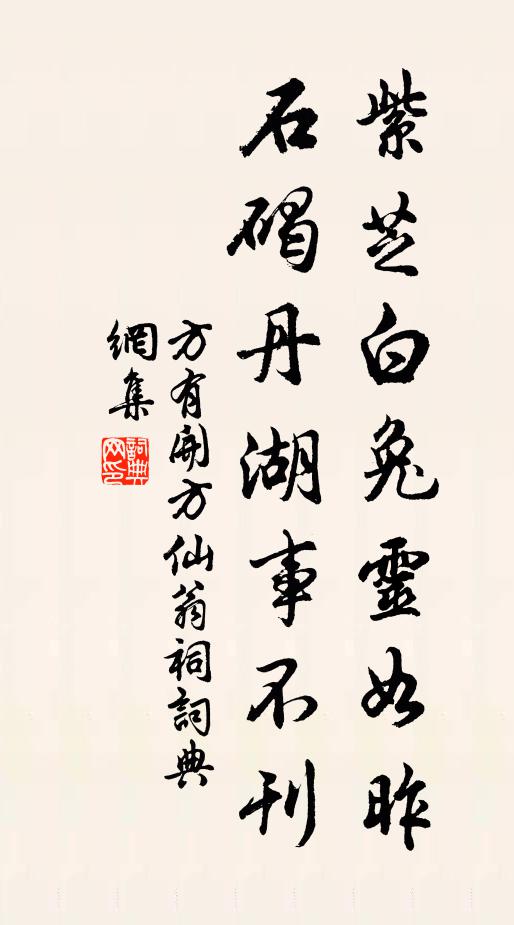 紫芝白兔靈如昨
石碣丹湖事不刊
方有開方仙翁祠詞典
網集
詞典網印